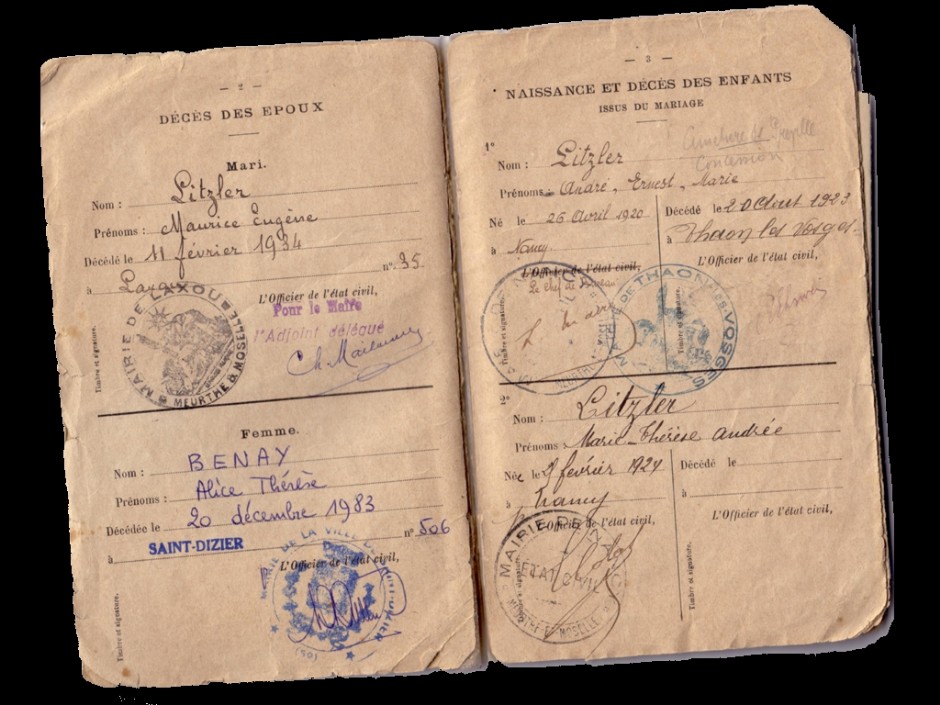 — 2 —
DÉCÈS DES EPOUX
Mari.
Nom : Litzler
Prénoms : Maurice Eugène
Décédé le 11 février 1934
à Laxou n° 35
L'Officier de l'état civil,
Pour le Maire
l'Adjoint délégué
MAIRIE DE LAXOU
MEURTHE & MOSELLE
Timbre et signature.
Femme.
Nom : BENAY
Prénoms : Alice Thérèse
Décédée le 20 décembre 1983
à SAINT-DIZIER n° 506
L'Officier de l'état civil,
MAIRIE DE LA VILLE DE
Timbre et signature.
— 3 —
NAISSANCE ET DÉCÈS DES ENFANTS
ISSUS DU MARIAGE
1°
Nom : Litzler
Concession
Prénoms : André, Ernest, Marie
Né le 26 Avril 1920
à Nancy
L'Officier de l'état civil,
Le Chef de Bureau
Timbre et signature.
Décédé le 20 Août 1923
à Thaon les Vosges
L'Officier de l'état civil,
MAIRIE DE THAON-LES-VOSGES
Timbre et signature.
Nom : Litzler
Prénoms Marie-Thérèse Andrée
Née le 9 février 1924
à Nancy
L'Officier de l'état civil,
MAIRIE DE
ETAT CIVIL
Décédé le
à
L'Officier de l'état civil,
Timbre et signature.